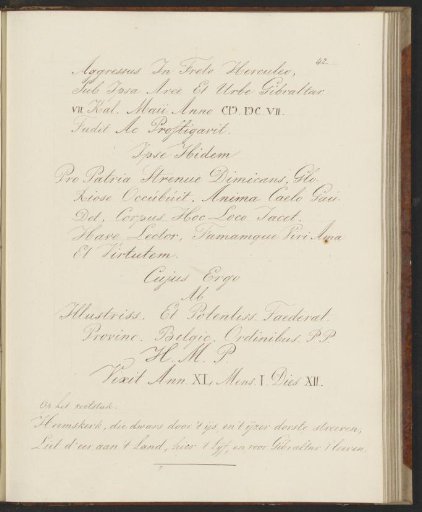 42
Aggressus In Freto Herculeo,
Sub Ipsa Arce Et Urbe Gibraltar
VII. Kal. Maii Anno CIↃ. IↃC VII.
Fudit Ac Profligavit.
Ipse Ibidem
Pro Patria Strenue Dimicans, Glo.
Riose Occubuit. Anima Caelo Gau.
Det, Corpus Hoc Loco Jacet.
Have Lector, Famamque Viri Ama
Et Virtutem.
Cujus Ergo
Ab
Illustriss. Et Potentiss. Faederat.
Provinc. Belgic. Ordinibus P.P
H. M. P
Vixit Ann. XL, Mens. I. Dies XII.
Op het voetstuk.
Heemskerk, die dwars door 't ijs, en 't ijzer dorste streeven,
Liet d'eer aan 't Land, hier 't lijf, en voor Gibraltar 't leeven.